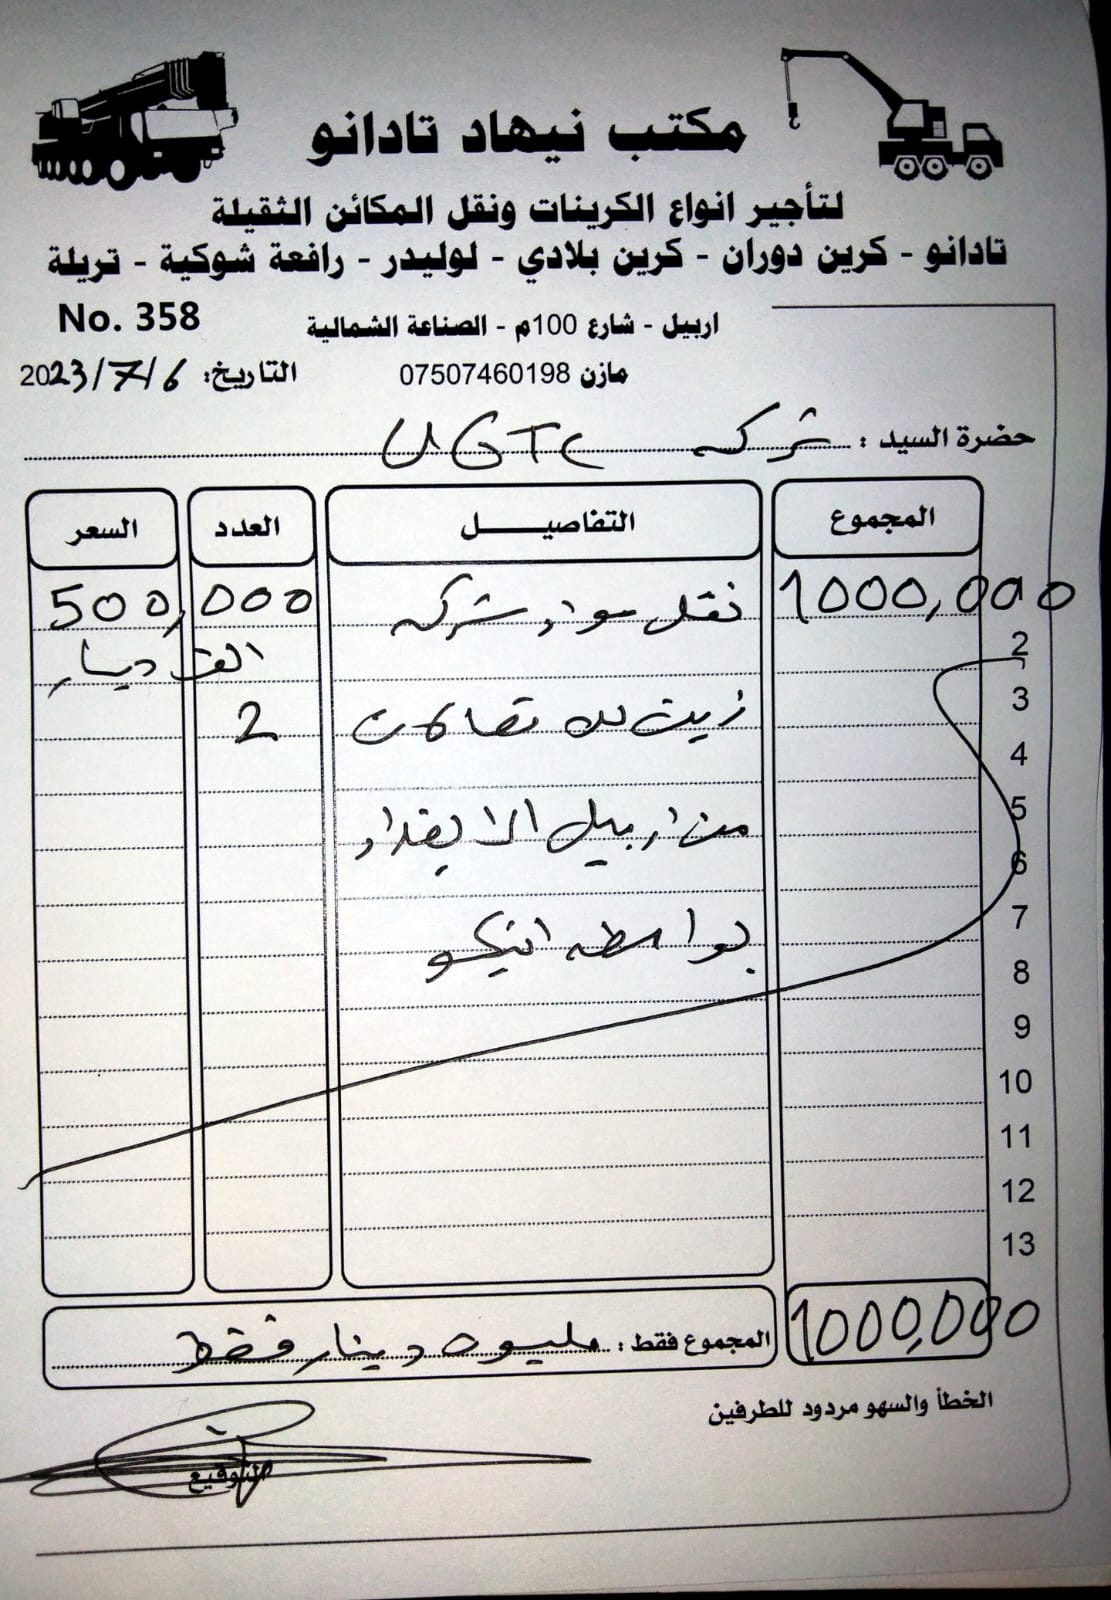 مكتب نيهاد تادانو
لتأجير انواع الكرينات ونقل المكائن الثقيلة
تادانو - كرين دوران - كرين بلادي - لوليدر - رافعة شوكية - تريلة
اربيل - شارع 100م - الصناعة الشمالية
No. 358
مازن 07507460198
التاريخ: 2023/7/6
حضرة السيد : شركه UGTC
المجموع التفاصيــل العدد السعر
1000,000 نقل مواد شركه 500,000
الف دينار
زين للاتصالات 2
من اربيل الا بغداد
بواسطه
2
3
4
5
6
7
8
9
10
11
12
13
المجموع فقط : مليون دينار فقط 1000,000
الخطأ والسهو مردود للطرفين
التوقيع